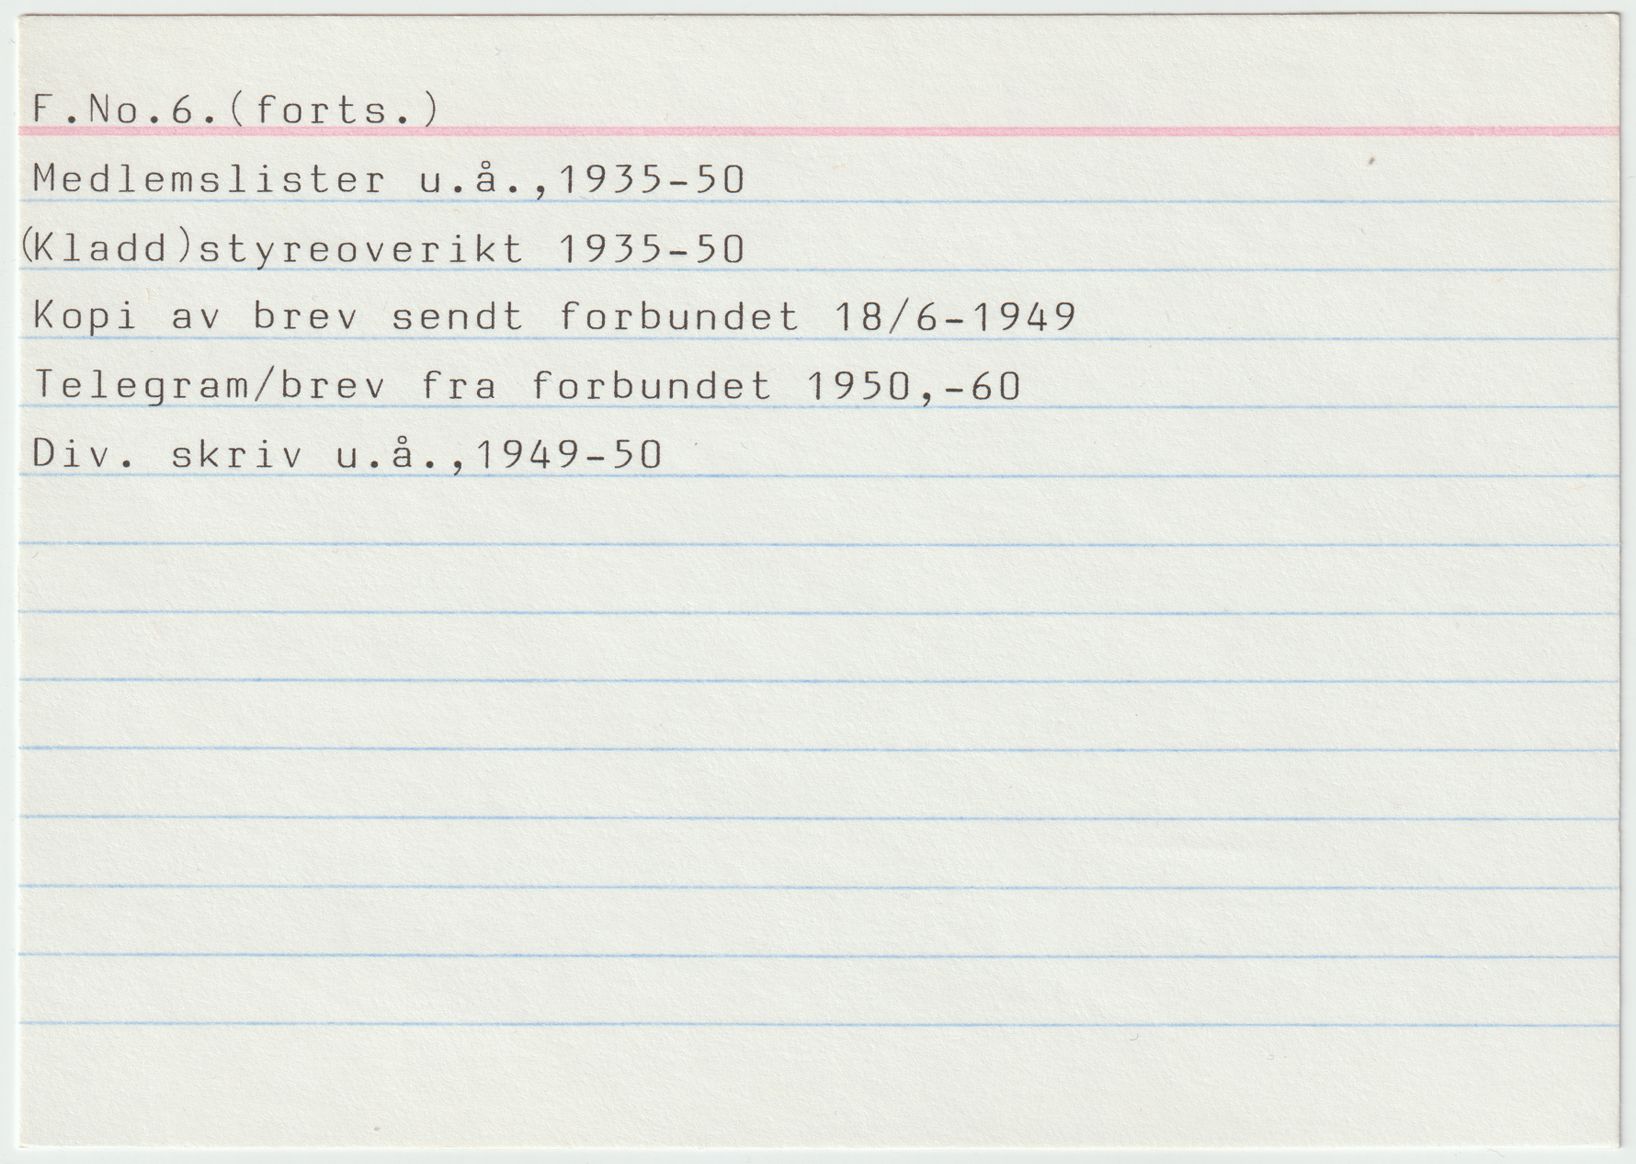 F.No.6.(forts.)
Medlemslister u.å.,1935-50
(Kladd)styreoverikt 1935-50
Kopi av brev sendt forbundet 18/6-1949
Telegram/brev fra forbundet 1950,-60
Div. skriv u.å.,1949-50